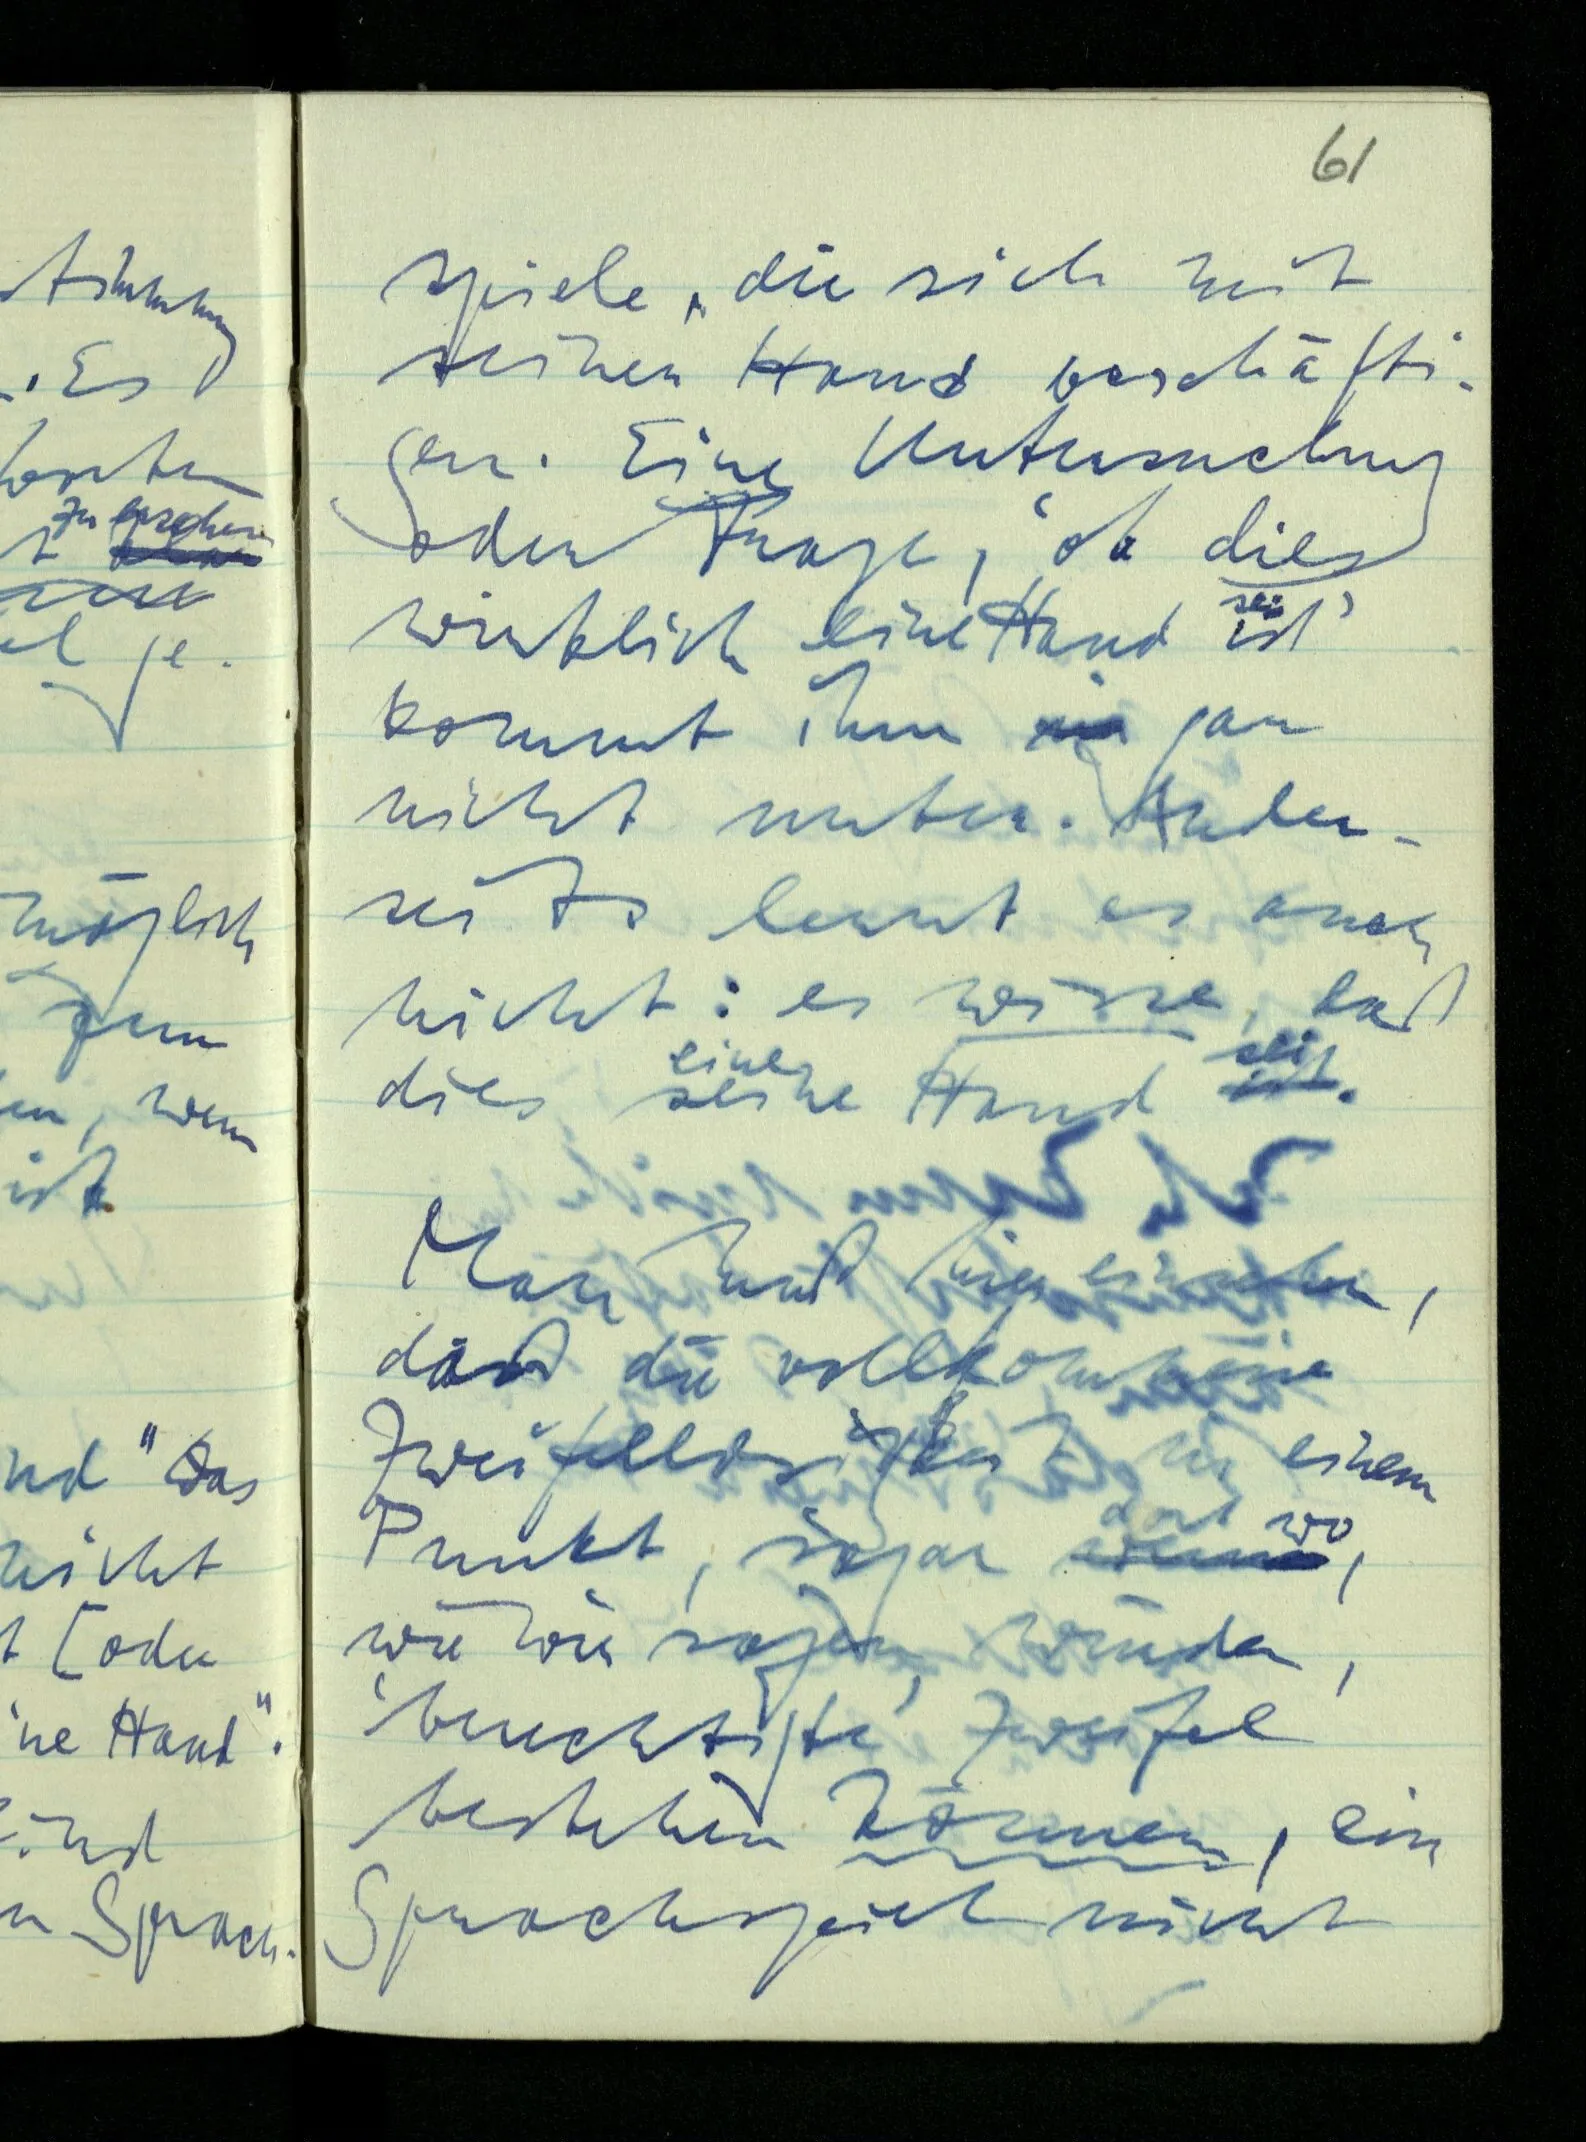 stimmung
. Es
möglich
zum
en, wenn
ist
nd "Das
nicht
t [oder
'ne Hand".
ind
n Sprach-
61
spiele, die sich mit
seinen Hand beschäfti-
gen. Eine Untersuchung
oder Frage, 'ob dies
sei
wirklich eine Hand ist'
kommt ihm gar
nicht unter. Ander-
seits lernt es auch
nicht: es wisse, daß
eine sei
dies seine Hand ist.
Man muß hier einsehen,
daß die vollkommene
Zweifellosigkeit in einem
dort wo
Punkt, sogar wenn,
wie wir sagen würden,
'berechtigte' Zweifel
bestehen können, ein
Sprachspiel nicht